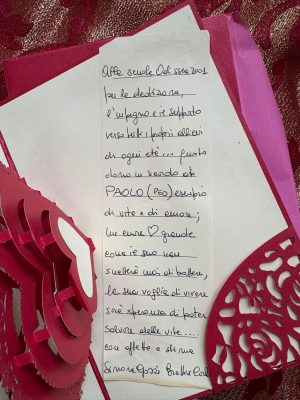 Alla scuola Odissea 2001
per la dedizione,
l'impegno e il supporto
verso tutti i propri allievi
di ogni età... questo
dono in ricordo di
PAOLO (PEO) esempio
di vita e di amore;
un cuore ♡ grande
come il suo non
smetterà mai di battere,
la sua voglia di vivere
sarà speranza di poter
salvare delle vite....
con affetto e stima
Simone